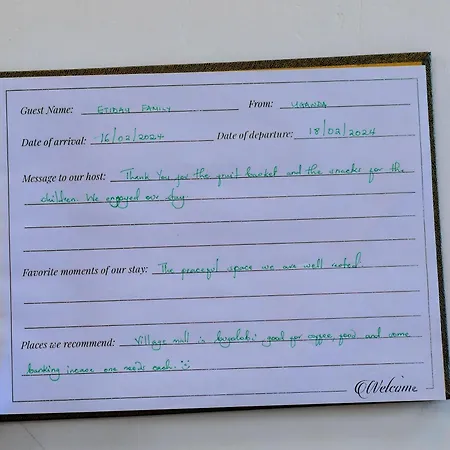 Guest Name: ETIDAU FAMILY From: UGANDA
Date of arrival: 16/02/2024 Date of departure: 18/02/2024
Message to our host: Thank You for the fruit basket and the snacks for the
children. We enjoyed our stay.
Favorite moments of our stay: The peaceful space we are well rested.
Places we recommend: Village mall in bugolobi, good for coffee, food and some
banking incase one needs cash. :)
Welcome